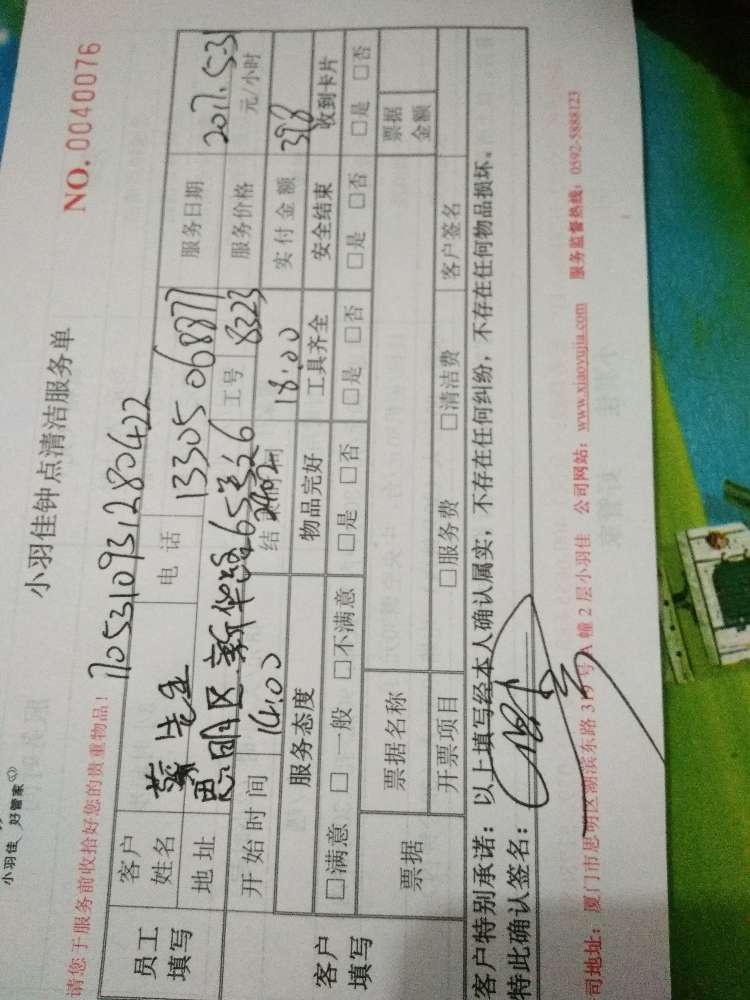 小羽佳 好管家
小羽佳钟点清洁服务单
NO.0040076
请您于服务前收拾好您的贵重物品！
1705310931280422
员工填写
客户姓名 蔡先生 电话 13305068877 服务日期 2017.5.31
地址 思明区新华路65号 2602 工号 8323 服务价格 元/小时
开始时间 14:00 结束时间 18:00 实付金额 398
客户填写
服务态度 物品完好 工具齐全 安全结束 收到卡片
□满意 □一般 □不满意 □是 □否 □是 □否 □是 □否 □是 □否
票据 票据名称 票据金额
开票项目 □服务费 □清洁费 客户签名
客户特别承诺：以上填写经本人确认属实，不存在任何纠纷，不存在任何物品损坏。
特此确认签名：
司地址：厦门市思明区湖滨东路319号A幢2层小羽佳 公司网站：www.xiaoyujia.com 服务监督热线：0592-5888123